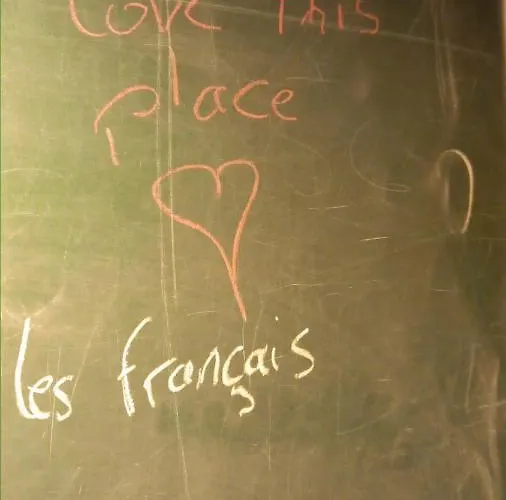 Love This
Place
les français